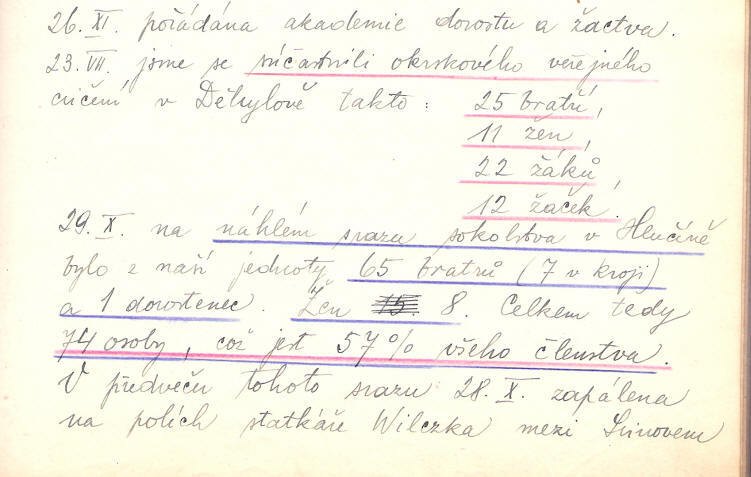 26. XI. pořádána akademie dorostu a žactva.
23. VII. jsme se súčastnili okrskového veřejného
cvičení v Děhylově takto: 25 bratří,
11 žen,
22 žáků,
12 žaček.
29. X. na náhlém srazu sokolstva v Hlučíně
bylo z naší jednoty 65 bratrů (7 v kroji)
a 1 dorostenec. Žen 15. 8. Celkem tedy
74 osoby, což jest 57% všeho členstva.
V předvečer tohoto srazu 28. X. zapálena
na polích statkáře Wilczka mezi